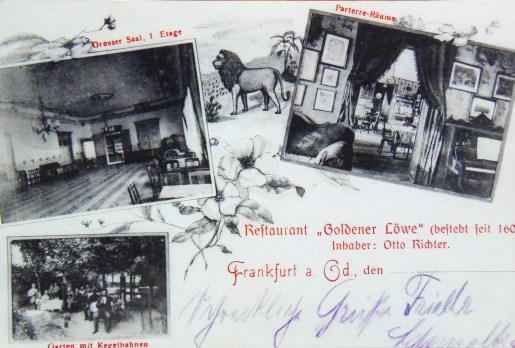 Grosser Saal, 1 Etage
Parterre-Räume
Restaurant „Goldener Löwe" (besteht seit 160
Inhaber: Otto Richter.
Frankfurt a. Od., den
Grüße
Garten mit Kegelbahnen